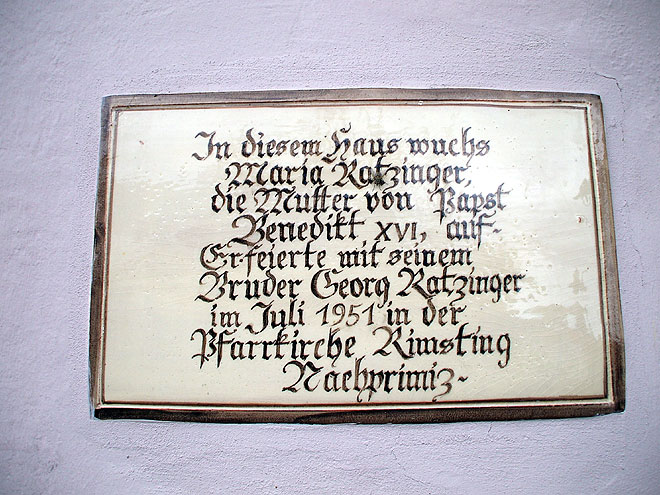 In diesem Haus wuchs
Maria Ratzinger,
die Mutter von Papst
Benedikt XVI, auf-
Er feierte mit seinem
Bruder Georg Ratzinger
im Juli 1951 in der
Pfarrkirche Rimsting
Nachprimiz-